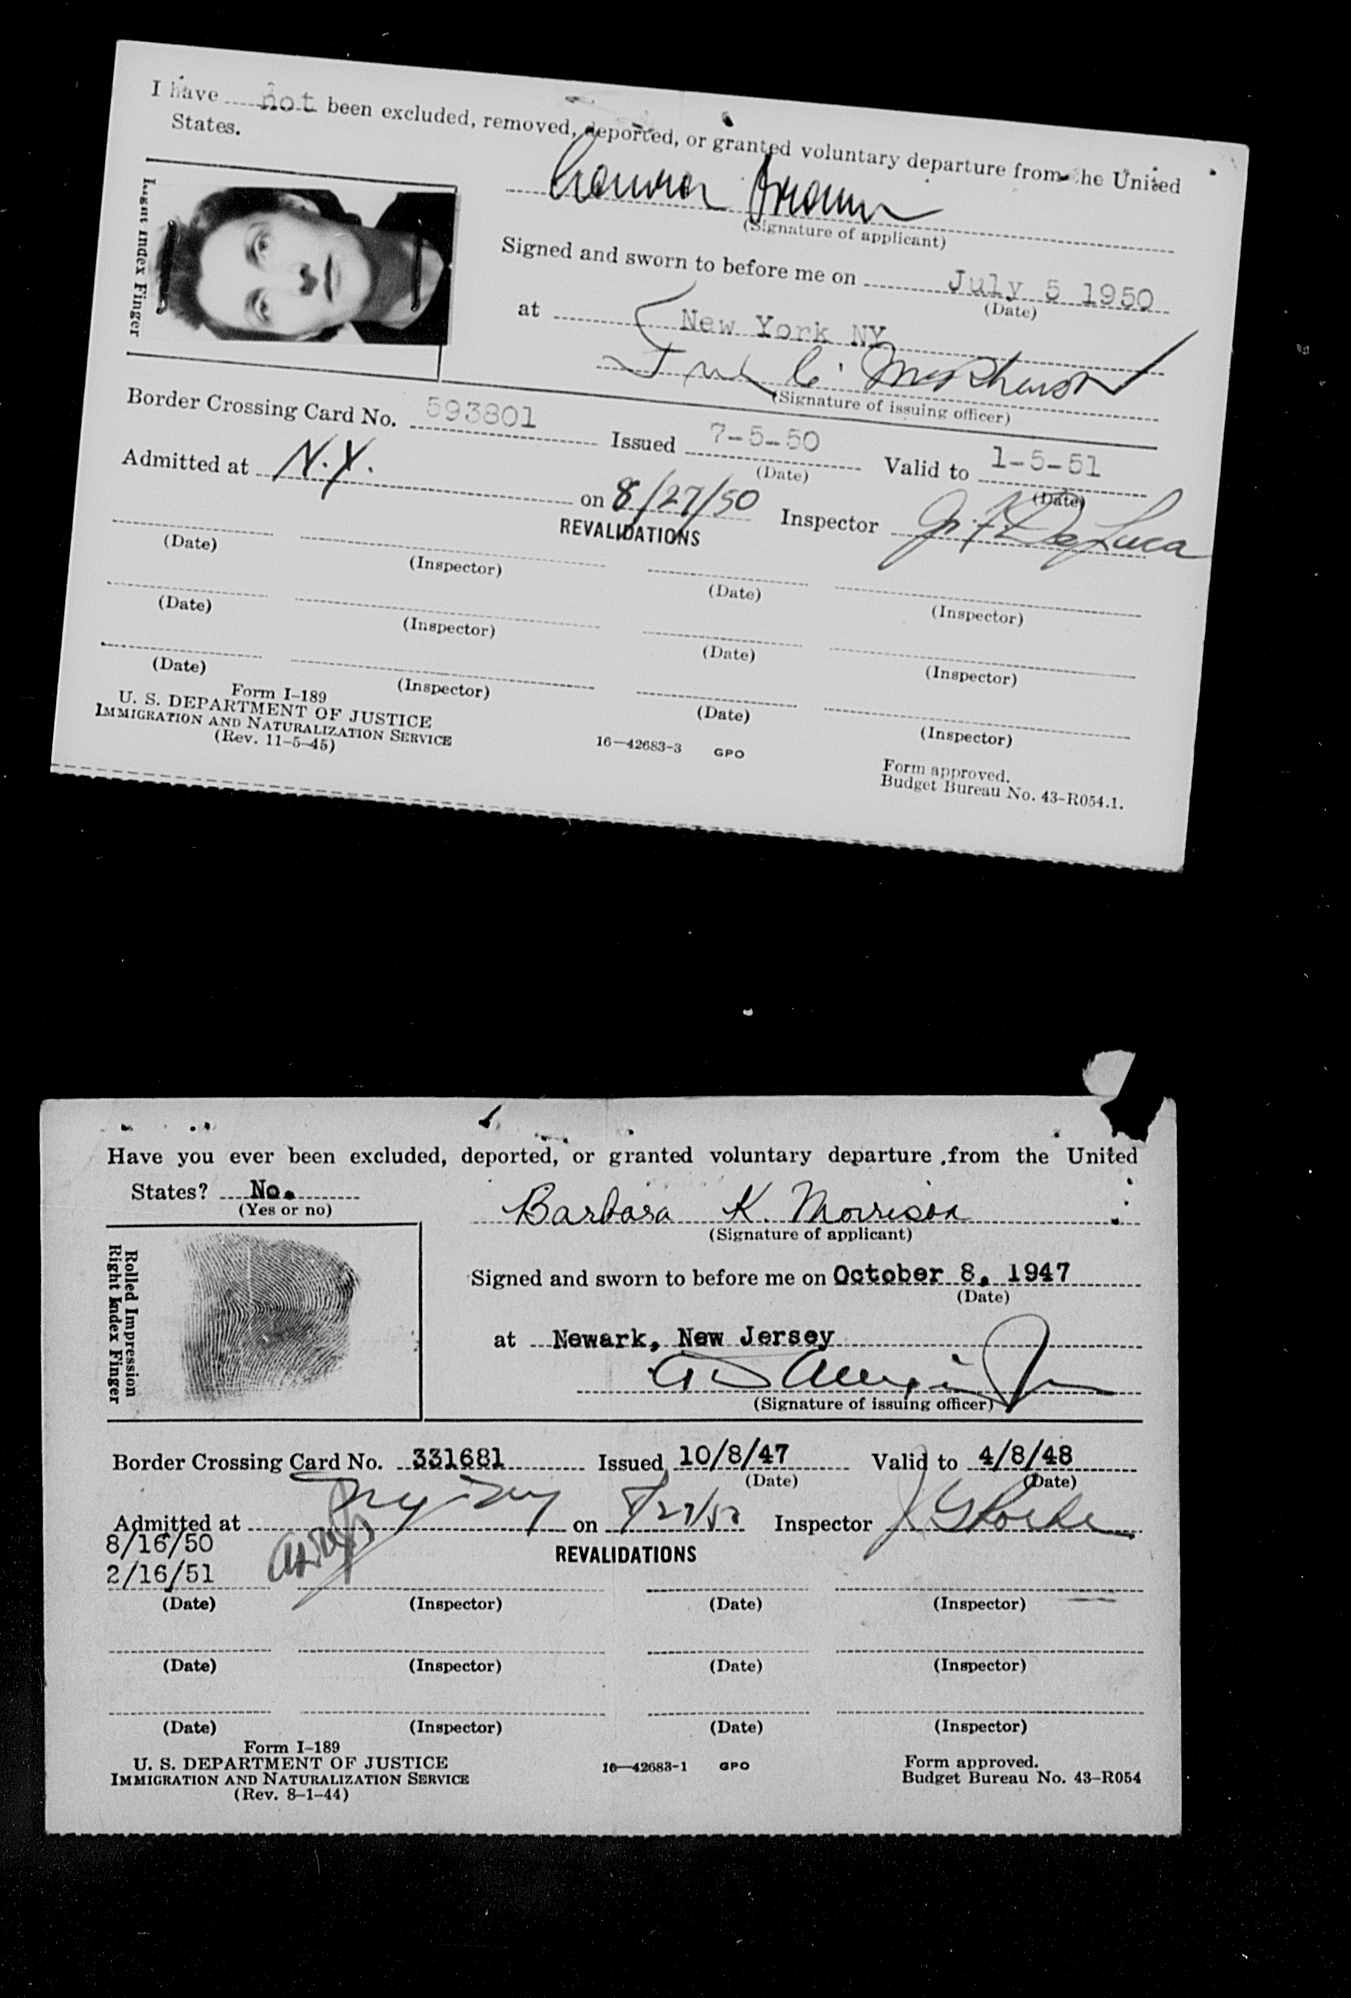 I have not been excluded, removed, deported, or granted voluntary departure from the United
States.
Right Index Finger
Brown
(Signature of applicant)
Signed and sworn to before me on July 5 1950
(Date)
at New York NY
(Signature of issuing officer)
Border Crossing Card No. 593801 Issued 7-5-50 Valid to 1-5-51
(Date) (Date)
Admitted at N.Y. on 8/27/50 Inspector DeLuca
REVALIDATIONS
(Date) (Inspector) (Date) (Inspector)
(Date) (Inspector) (Date) (Inspector)
(Date) (Inspector) (Date) (Inspector)
Form I-189
U. S. DEPARTMENT OF JUSTICE
IMMIGRATION AND NATURALIZATION SERVICE
(Rev. 11-5-45)
16—42683-3 GPO
Form approved.
Budget Bureau No. 43-R054.1.
Have you ever been excluded, deported, or granted voluntary departure from the United
States? No.
(Yes or no)
Barbara K. Morrison
(Signature of applicant)
Rolled Impression
Right Index Finger
Signed and sworn to before me on October 8, 1947
(Date)
at Newark, New Jersey
(Signature of issuing officer)
Border Crossing Card No. 331681 Issued 10/8/47 Valid to 4/8/48
(Date) (Date)
Admitted at on 8/27/50 Inspector
8/16/50
REVALIDATIONS
2/16/51
(Date) (Inspector) (Date) (Inspector)
(Date) (Inspector) (Date) (Inspector)
(Date) (Inspector) (Date) (Inspector)
Form I-189
U. S. DEPARTMENT OF JUSTICE
IMMIGRATION AND NATURALIZATION SERVICE
(Rev. 8-1-44)
16—42683-1 GPO
Form approved.
Budget Bureau No. 43-R054